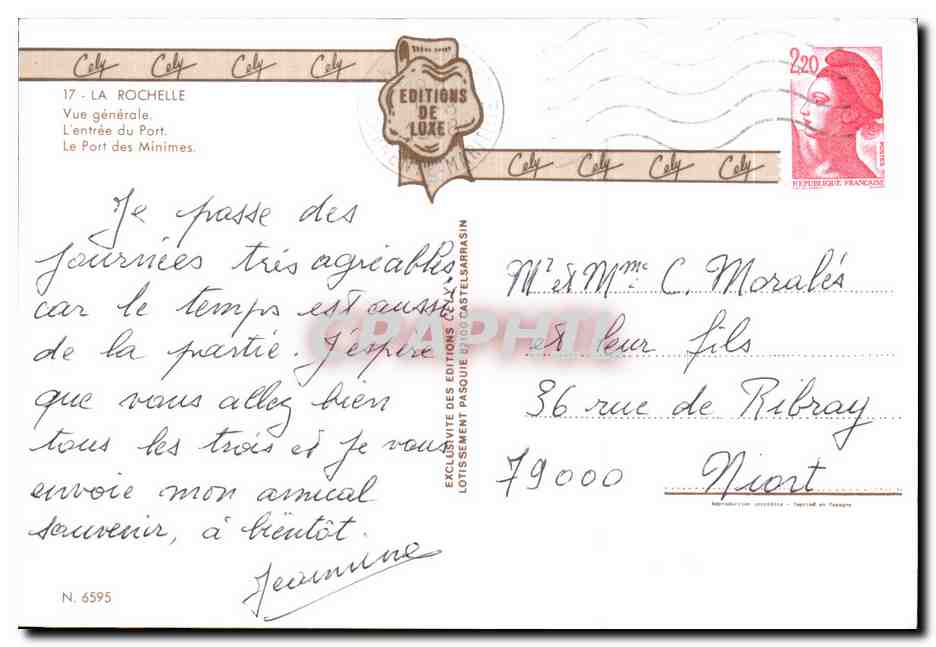 Cely Cely Cely Cely
17 - LA ROCHELLE
Vue générale.
L'entrée du Port.
Le Port des Minimes.
EDITIONS
DE
LUXE
Cely Cely Cely Cely
2,20
POSTES
REPUBLIQUE FRANÇAISE
Je passe des
journées très agréables
car le temps est aussi
de la partie. J'espère
que vous allez bien
tous les trois et je vous
envoie mon amical
souvenir, à bientôt.
Jeannine
N. 6595
EXCLUSIVITE DES EDITIONS CELY
LOTISSEMENT PASQUIE 82100 CASTELSARRASIN
CPAPHIL
Mr et Mme C. Moralés
et leur fils
36 rue de Ribray
79000 Niort
Reproduction interdite - Imprimé en Espagne